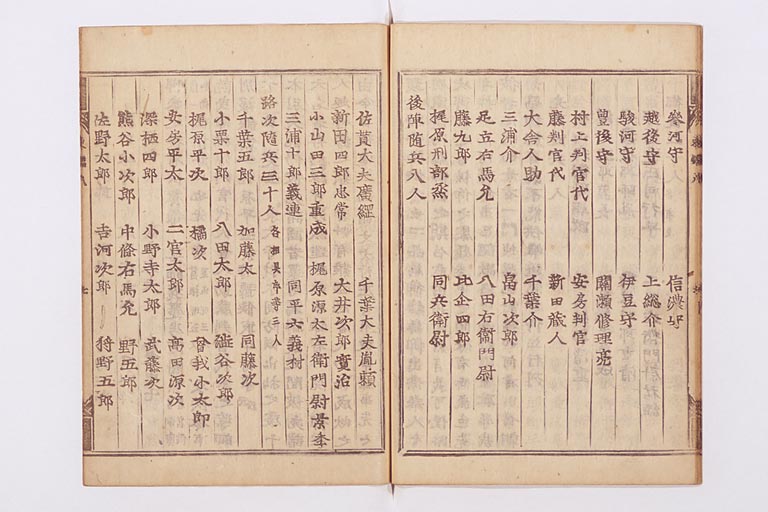 參河守 信濃守
越後守 上總介
駿河守 伊豆守
豊後守 關瀬修理亮
村上判官代 安房判官
藤判官代 新田藏人
大舍人助 千葉介
三浦介 畠山次郎
足立右馬允 八田右衞門尉
藤九郎 比企四郎
梶原刑部烝 同兵衞尉
後陣隨兵八人
佐貫大夫廣綱 千葉大夫胤頼
新田四郎忠常 大井次郎實治
小山田三郎重成 梶原源太左衞門尉景季
三浦十郎義連 同平六義村
路次隨兵三十人 各相具卒等三人
千葉五郎 加藤太 同藤次
小栗十郎 八田太郎 澁谷次郎
梶原平次 橘次 曾我小太郎
安房平太 二官太郎 高田源次
深栖四郎 小野寺太郎 武藤次
熊谷小次郎 中條右馬允 野五郎
佐野太郎 吉河次郎 狩野五郎